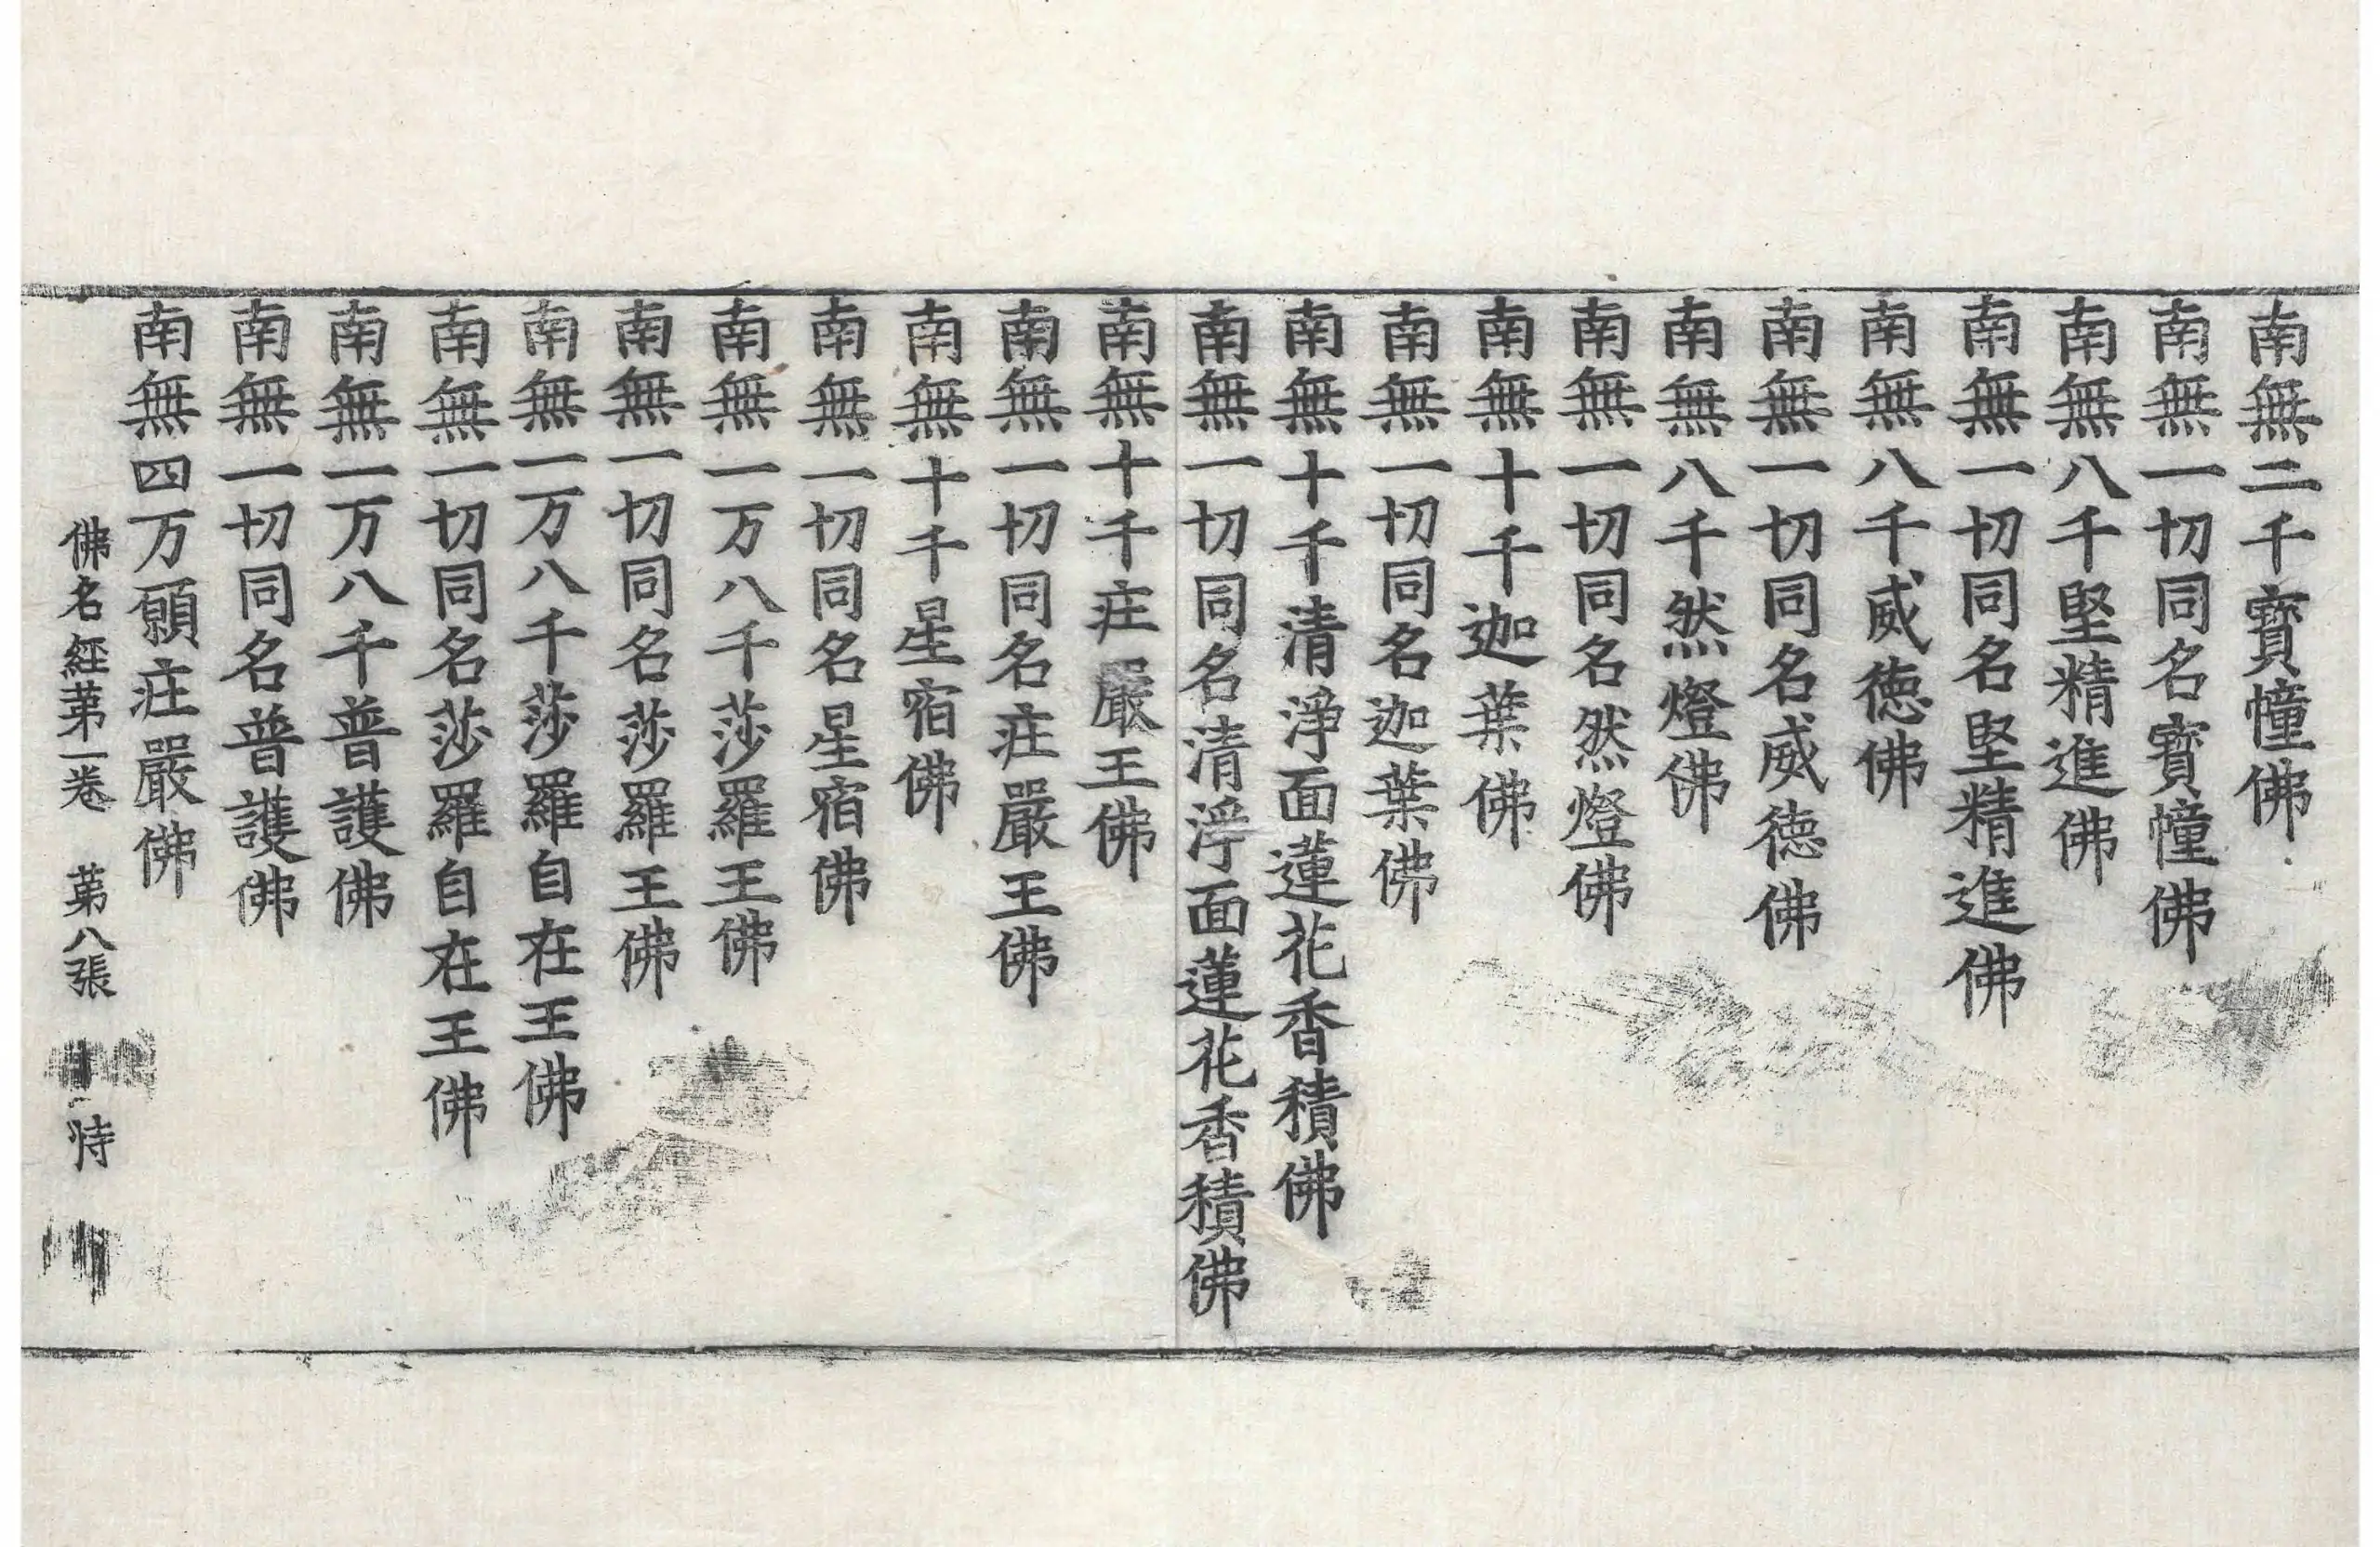 南無二千寶幢佛
南無一切同名寶幢佛
南無八千堅精進佛
南無一切同名堅精進佛
南無八千威徳佛
南無一切同名威徳佛
南無八千然燈佛
南無一切同名然燈佛
南無十千迦葉佛
南無一切同名迦葉佛
南無十千清淨面蓮花香積佛
南無一切同名清淨面蓮花香積佛
南無十千庄嚴王佛
南無一切同名庄嚴王佛
南無十千星宿佛
南無一切同名星宿佛
南無一万八千莎羅王佛
南無一切同名莎羅王佛
南無一万八千莎羅自在王佛
南無一切同名莎羅自在王佛
南無一万八千普護佛
南無一切同名普護佛
南無四万願庄嚴佛
佛名經苐一卷 苐八張 恃